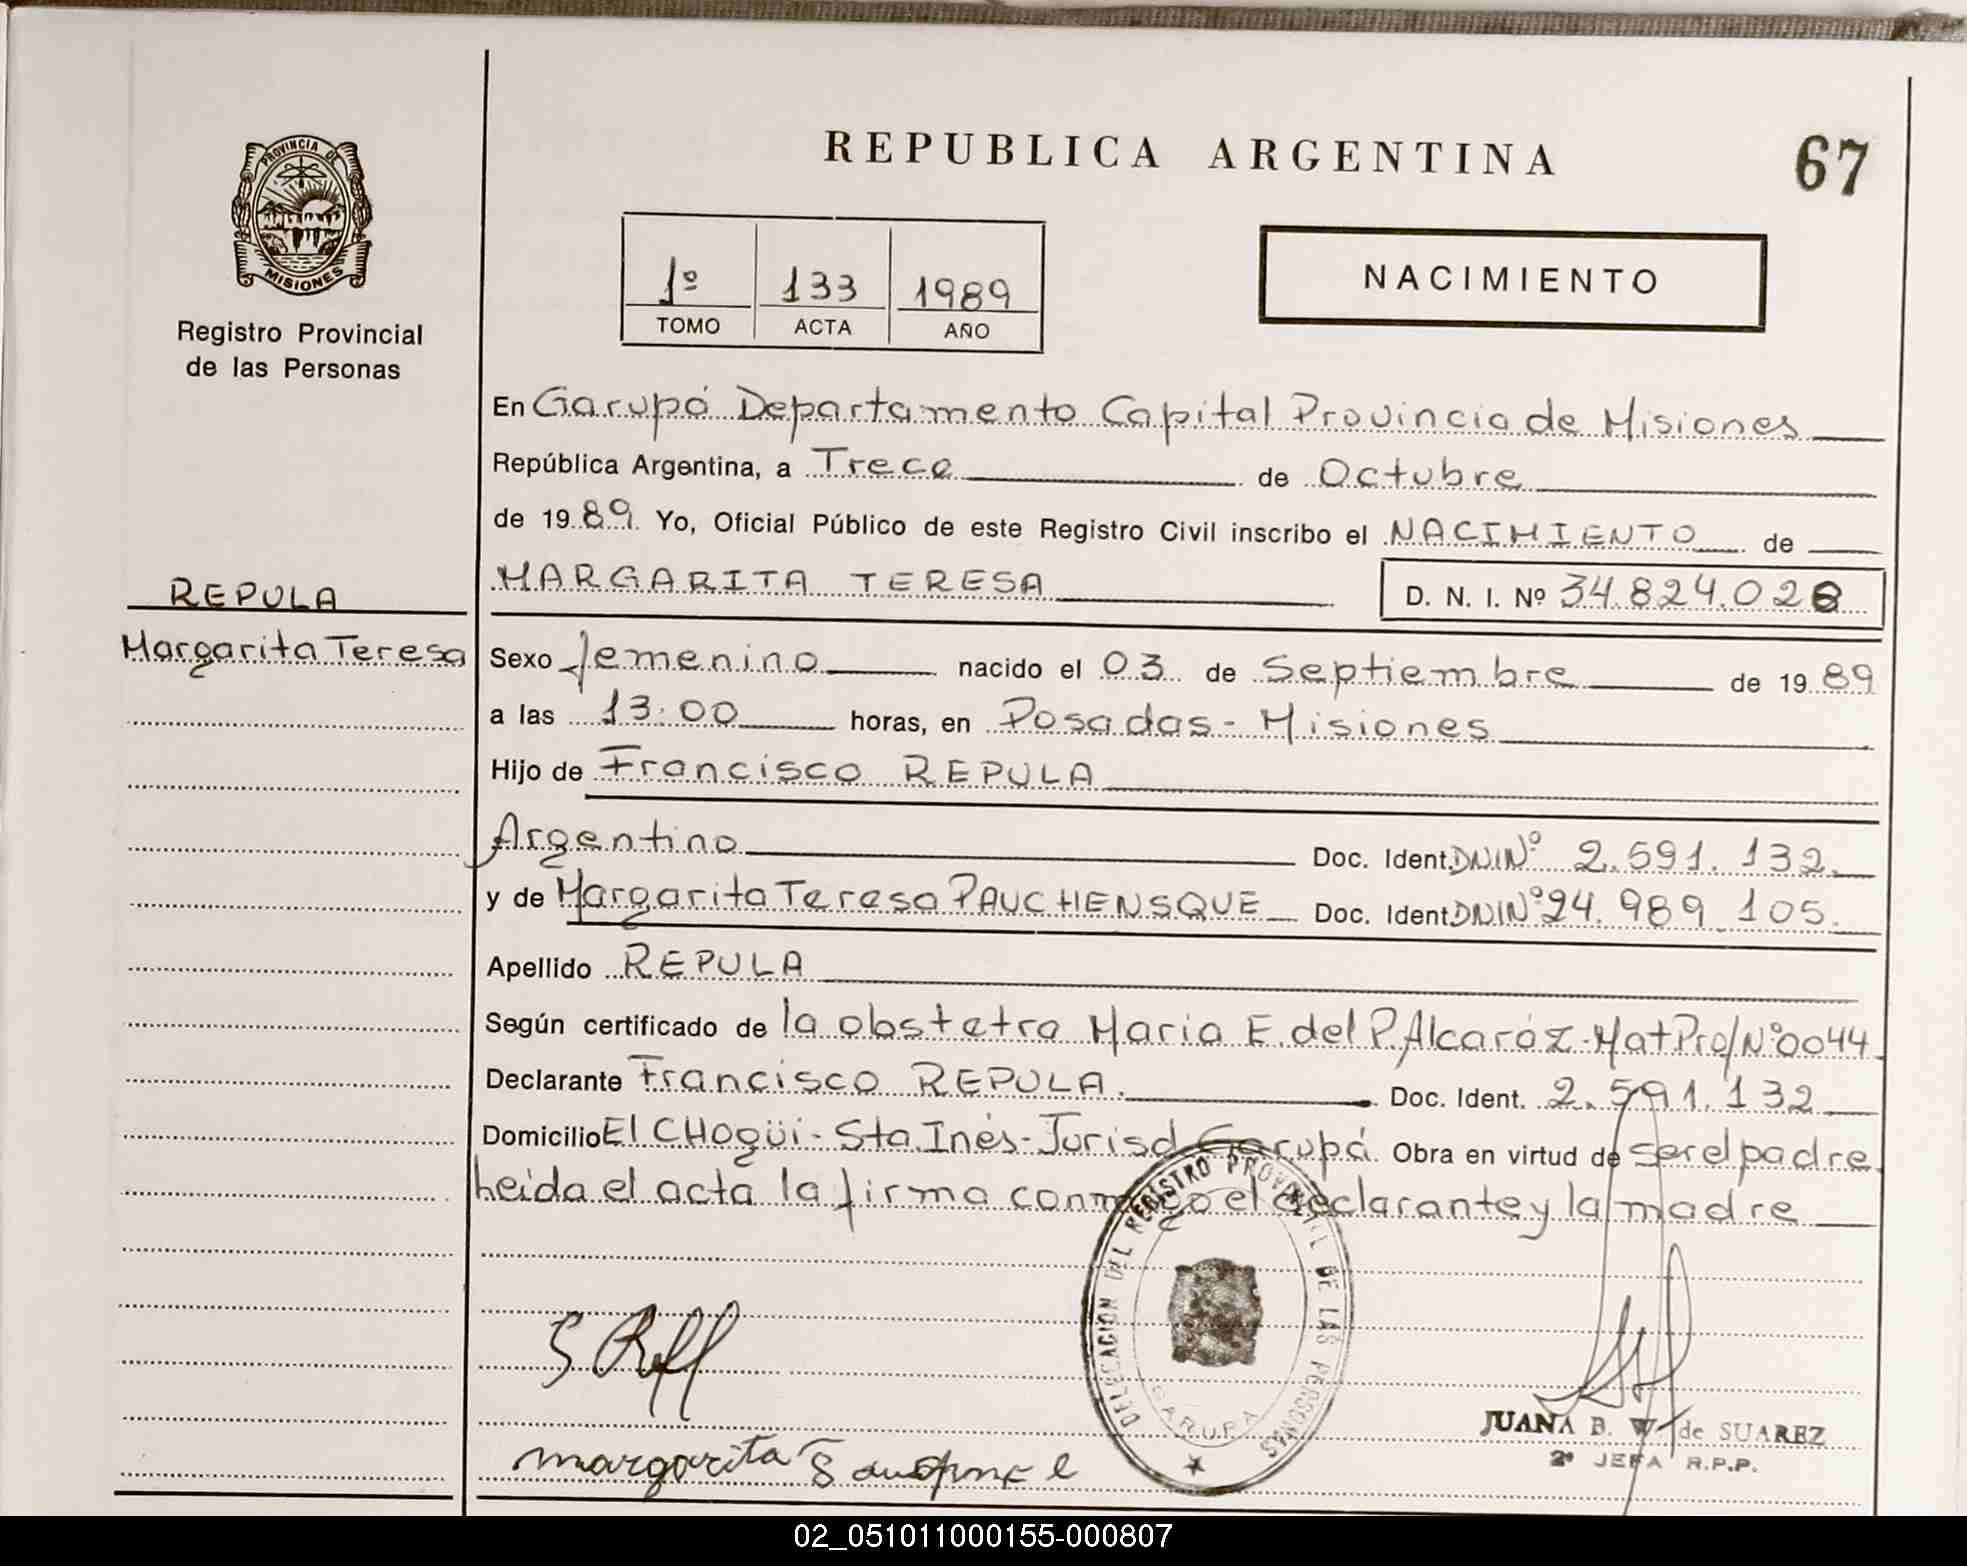 PROVINCIA DE
MISIONES
Registro Provincial
de las Personas
REPULA
Margarita Teresa
REPUBLICA ARGENTINA
67
1º 133 1989
TOMO ACTA AÑO
NACIMIENTO
En Garupá Departamento Capital Provincia de Misiones
República Argentina, a Trece de Octubre
de 1989 Yo, Oficial Público de este Registro Civil inscribo el NACIMIENTO de
MARGARITA TERESA D. N. I. Nº 34.824.028
Sexo femenino nacido el 03 de Septiembre de 1989
a las 13:00 horas, en Posadas - Misiones
Hijo de Francisco REPULA
Argentino Doc. Ident. DNI Nº 2.591.132.
y de Margarita Teresa PAUCHENSQUE Doc. Ident. DNI Nº 24.989.105.
Apellido REPULA
Según certificado de la obstetra Maria E. del P. Alcaráz - Mat Prof Nº 0044
Declarante Francisco REPULA. Doc. Ident. 2.591.132
Domicilio El CHogüi - Sta. Inés - Jurisd Garupá. Obra en virtud de ser el padre.
heida el acta la firma conmigo el declarante y la madre
DELEGACION DEL REGISTRO PROVINCIAL DE LAS PERSONAS
GARUPA
margarita
JUANA B. W. de SUAREZ
2ª JEFA R.P.P.
02_051011000155-000807